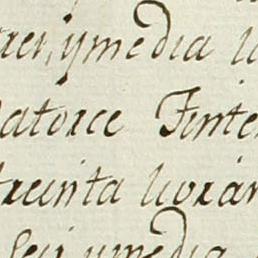 tres, y media li
catorce Tinte
treinta livras
Seis y media